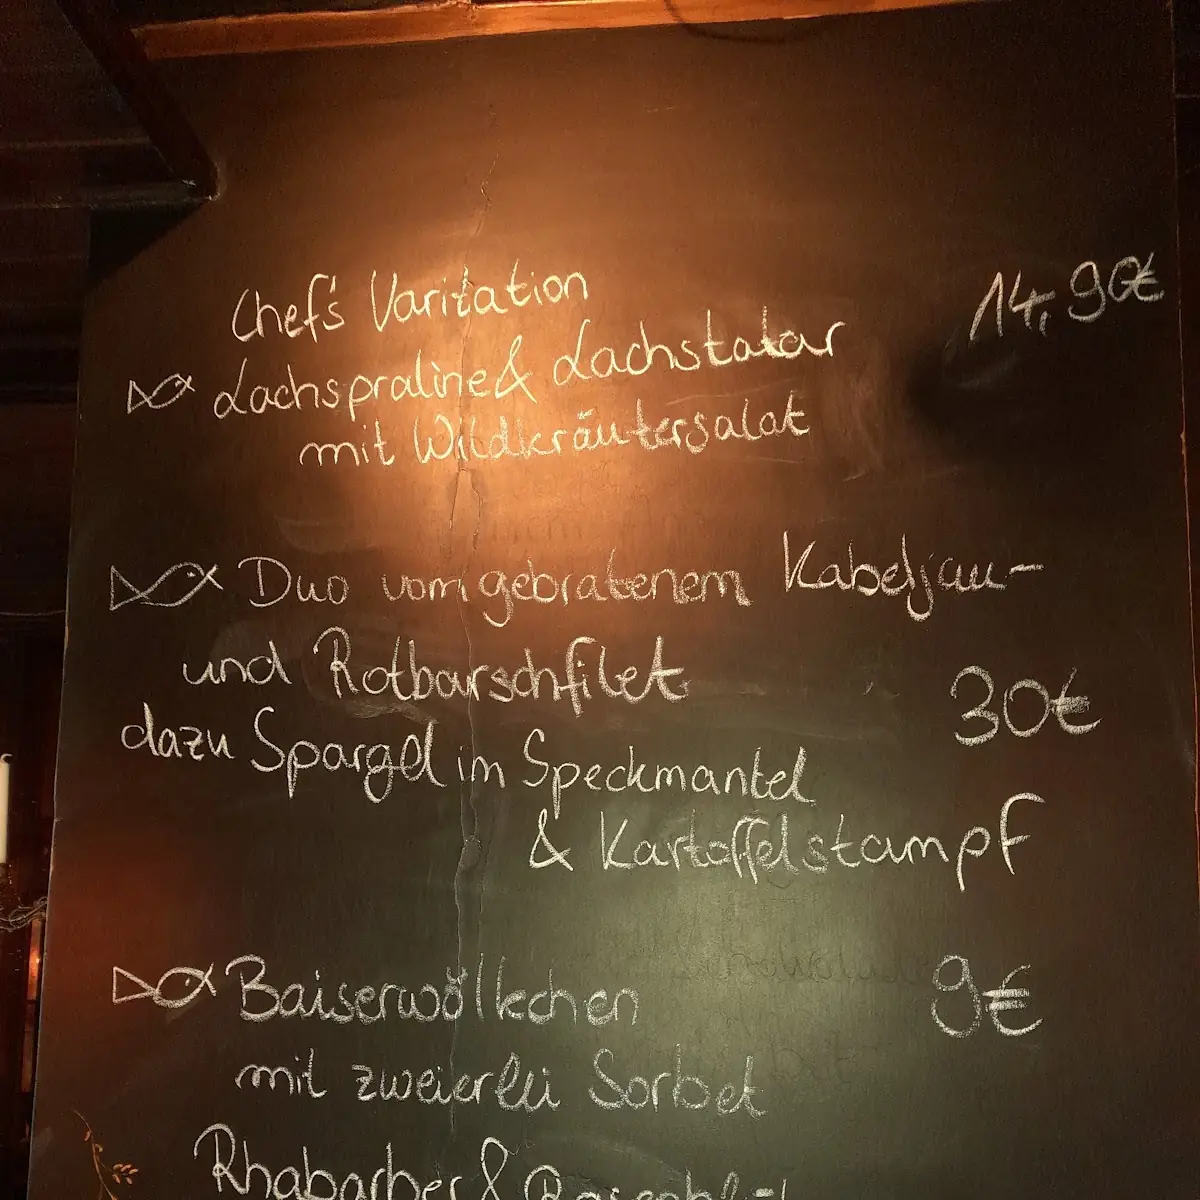 Chef's Varitation
14,90€
Lachspraline & Lachstatar
mit Wildkräutersalat
Duo vom gebratenem Kabeljau-
und Rotbarschfilet
30€
dazu Spargel im Speckmantel
& Kartoffelstampf
Baiserwölkchen
9€
mit zweierlei Sorbet
Rhabarber &